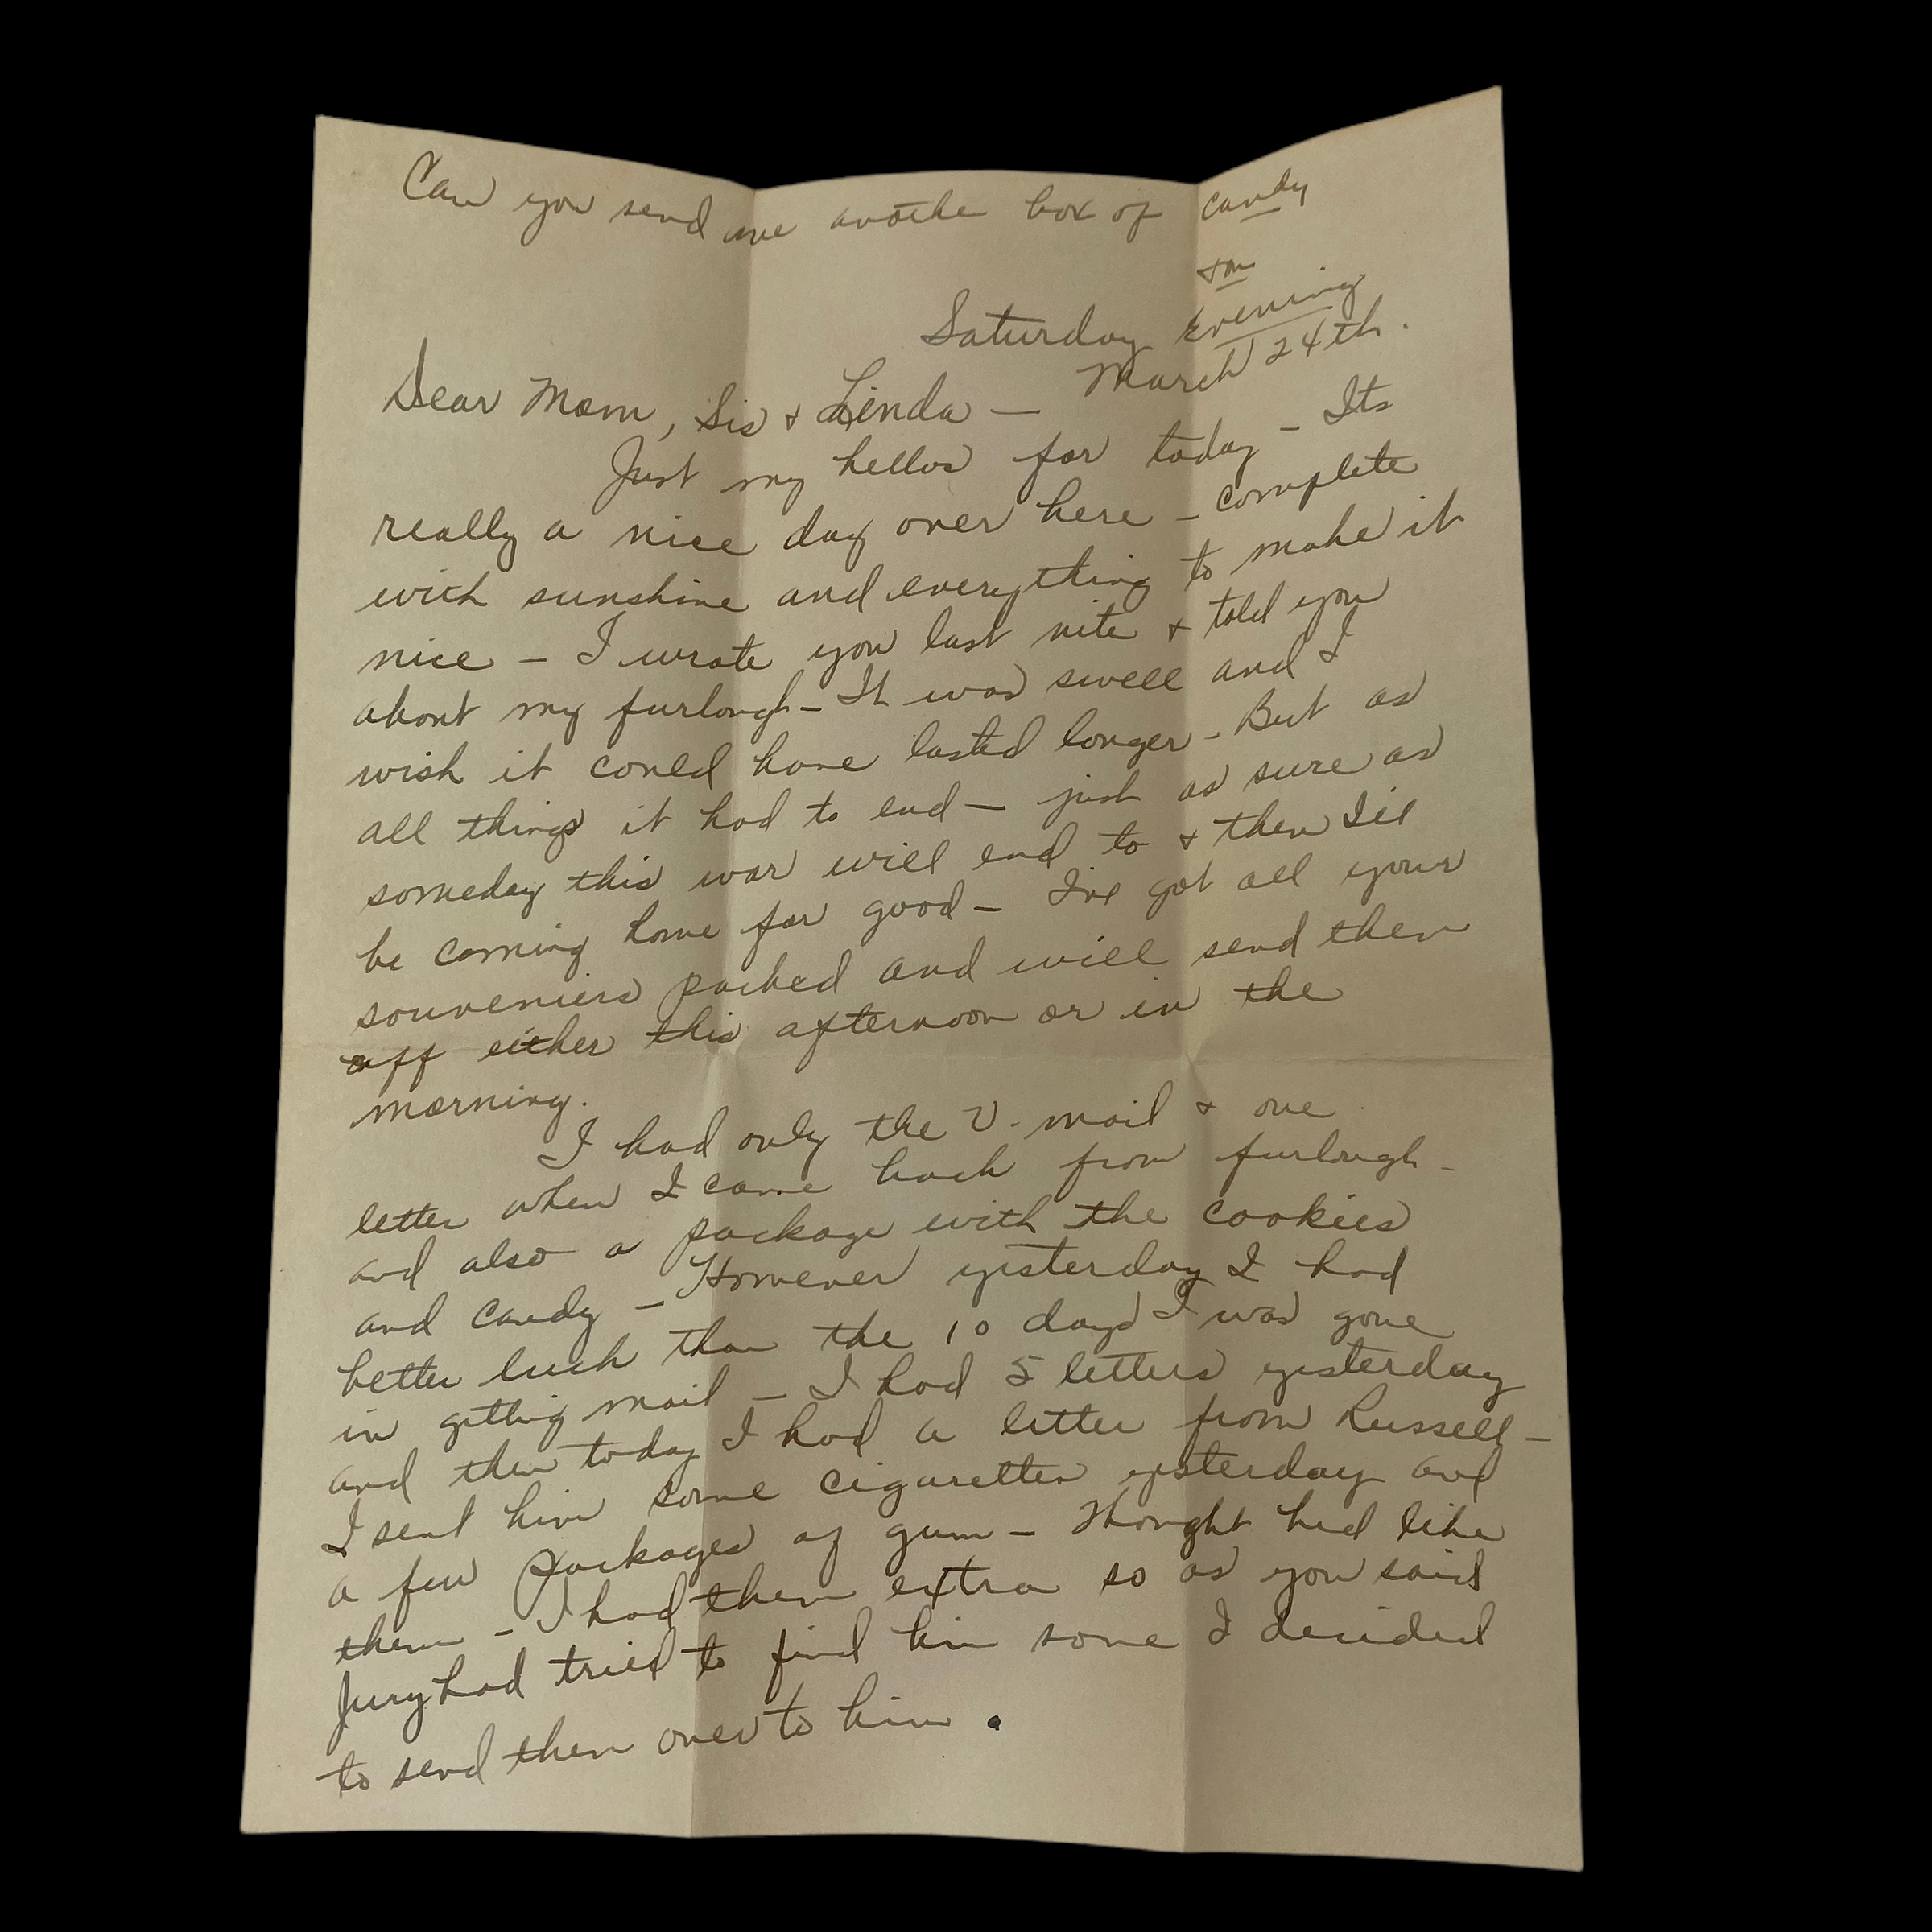 Can you send me anothe box of candy
Saturday Evening
March 24th.
Dear Mom, Sis + Linda —
Just my hellos for today — Its
really a nice day over here — complete
with sunshine and everything to make it
nice — I wrote you last nite + told you
about my furlough — It was swell and I
wish it could have lasted longer — But as
all things it had to end — just as sure as
someday this war will end to + then I'll
be coming home for good — I've got all your
souveniers packed and will send them
off either this afternoon or in the
morning.
I had only the V-mail + one
letter when I came back from furlough —
and also a package with the cookies
and candy — However yesterday I had
better luck than the 10 days I was gone
in getting mail — I had 5 letters yesterday
and then today I had a letter from Russell —
I sent him some cigarettes yesterday and
a few packages of gum — Thought hed like
them — I had them extra so as you said
had tried to find him some I decided
to send them over to him.